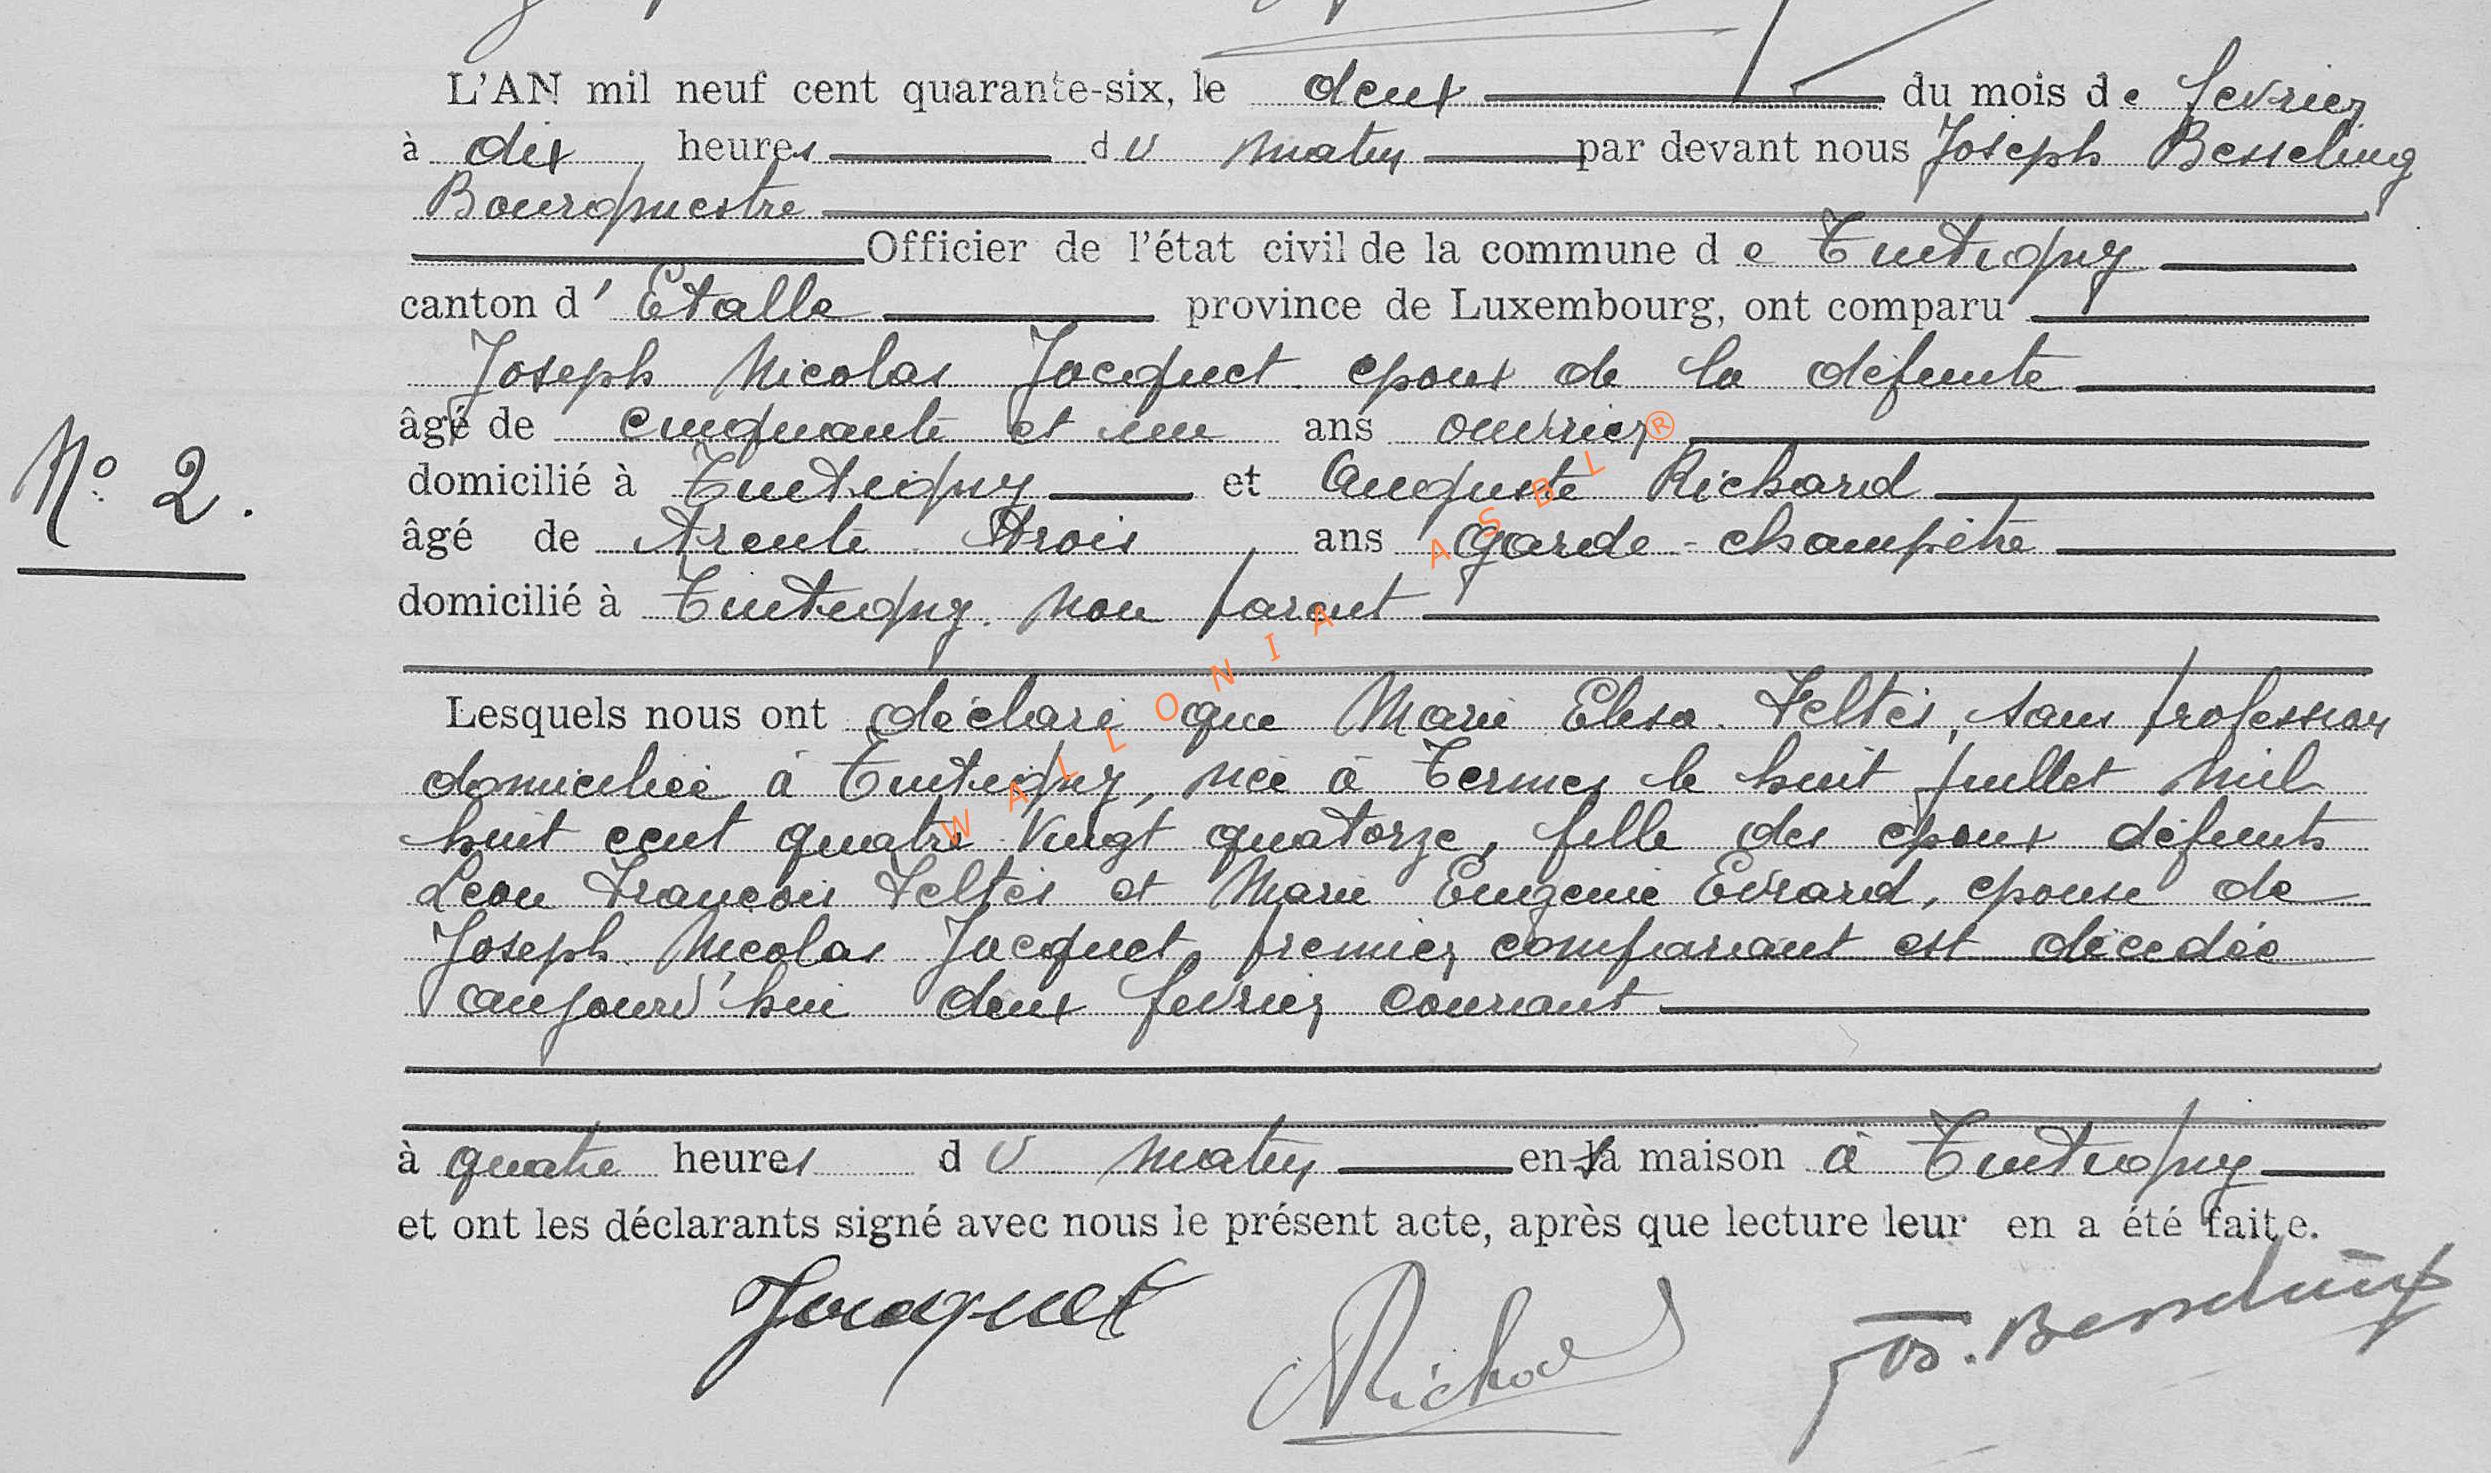 L'AN mil neuf cent quarante-six, le deux du mois de fevrier
à dix heures du matin par devant nous Joseph Besseling
Bourgmestre
Officier de l'état civil de la commune de Tintigny
canton d'Etalle province de Luxembourg, ont comparu
Joseph Nicolas Jacquet epoux de la défunte
N° 2.
âgé de cinquante et un ans ouvrier
domicilié à Tintigny et Auguste Richard
âgé de trente trois ans garde-champêtre
domicilié à Tintigny. non parent
Lesquels nous ont déclaré que Marie Elisa Feltès, sans profession
domiciliée à Tintigny, née à Termes le huit juillet mil
huit cent quatre vingt quatorze, fille des epoux défunts
Léon François Feltès et Marie Eugenie Evrard, epouse de
Joseph Nicolas Jacquet premier comparant est décédée
aujourd'hui deux fevrier courant
à quatre heures du matin en sa maison à Tintigny
et ont les déclarants signé avec nous le présent acte, après que lecture leur en a été faite.
Jacquet
Richard
Jos. Besseling
WALLONIA ASBL®